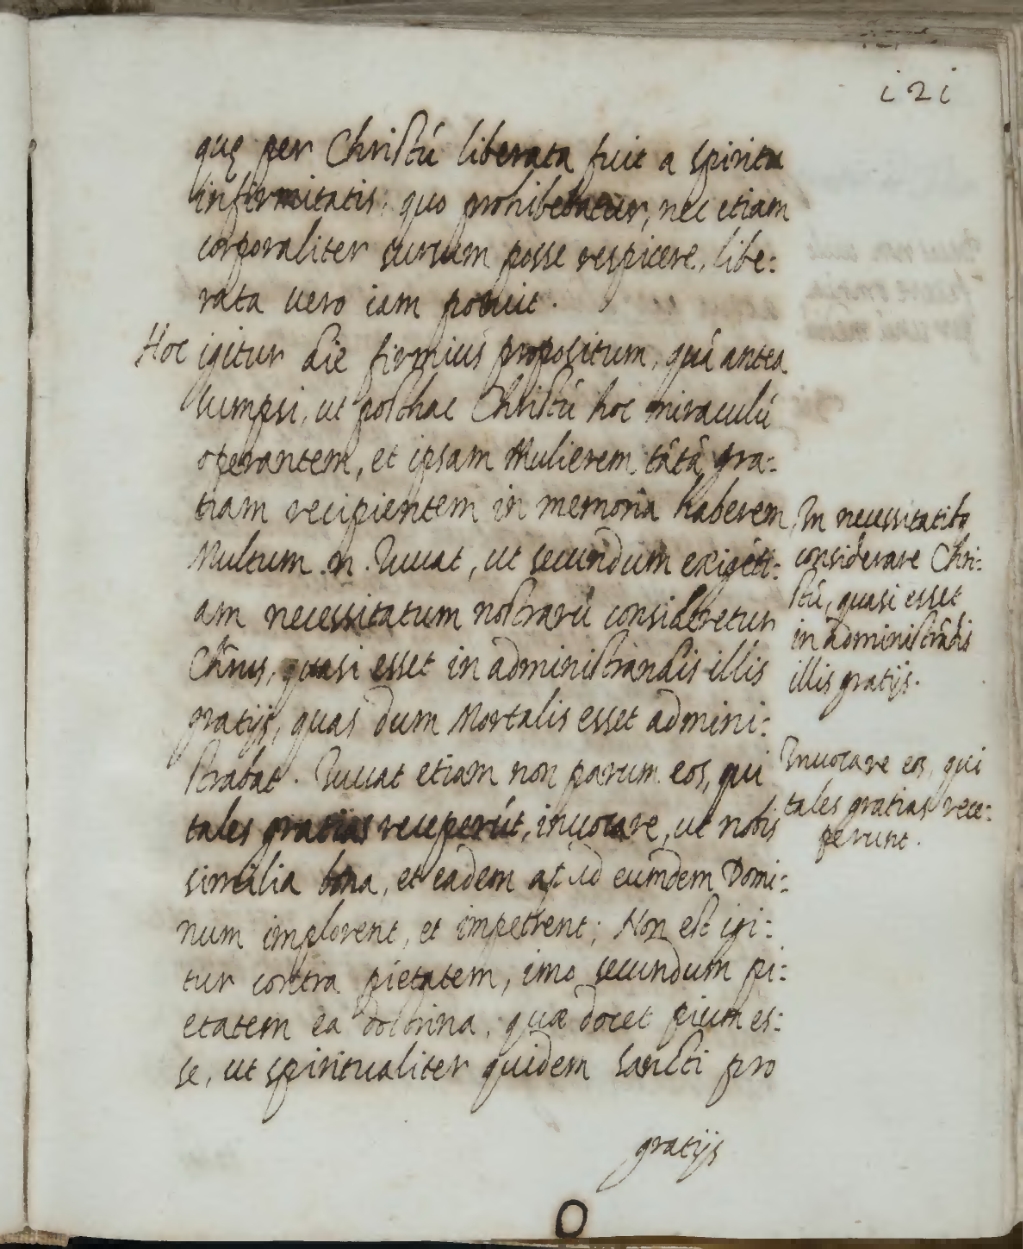 121
quę per Christú liberata fuit a spiritu
infirmitatis, quo prohibebatur, nec etiam
corporaliter sursum posse respicere, libe:
rata vero iam potuit.
Hoc igitur die firmius propositum, quá antea
sumpsi, ut posthac Christú hoc miraculú
operantem, et ipsam Mulierem tátá gra:
tiam recipientem in memoria haberem
Multum .n. Iuuat, ut secundum exigéti:
am necessitatum nostrarú consideretur
Chr̃us, quasi esset in administrandis illis
gratijs, quas dum Mortalis esset admini:
strabat. Iuuat etiam non parum eos, qui
tales gratias receperút, inuocare, ut nobis
similia bona, et eadem ap̃ id eumdem Domi:
num implorent, et impetrent; Non est igi:
tur contra pietatem, imo secundum pi:
etatem ea doctrina, quæ docet pium es:
se, ut spiritualiter quidem Sancti pro
gratijs
In necessitatib9
considerare Chri:
stú, quasi esset
in administrádis
illis gratijs.
Inuocare eos, qui
tales gratias rece:
perunt.
O